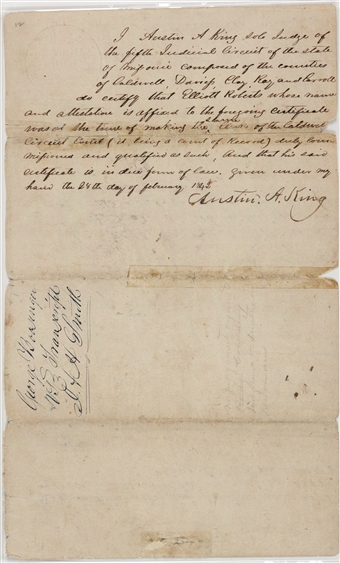 I Austin A King sole Judge of
the fifth Judicial Circuit of the state
of Missouri composed of the counties
of Caldwell Daviess Clay Ray and Carroll
do certify that Elliott Roberts whose name
and attestation is affixed to the foregoing certificate
was at the time of making clerk of the Caldwell
Circuit Court (it being a court of Record) duly
and qualified as such, And that his said
certificate is in due form of law. given under my
hand the 24th day of february
Austin A. King
George
vs Transcript
Smith